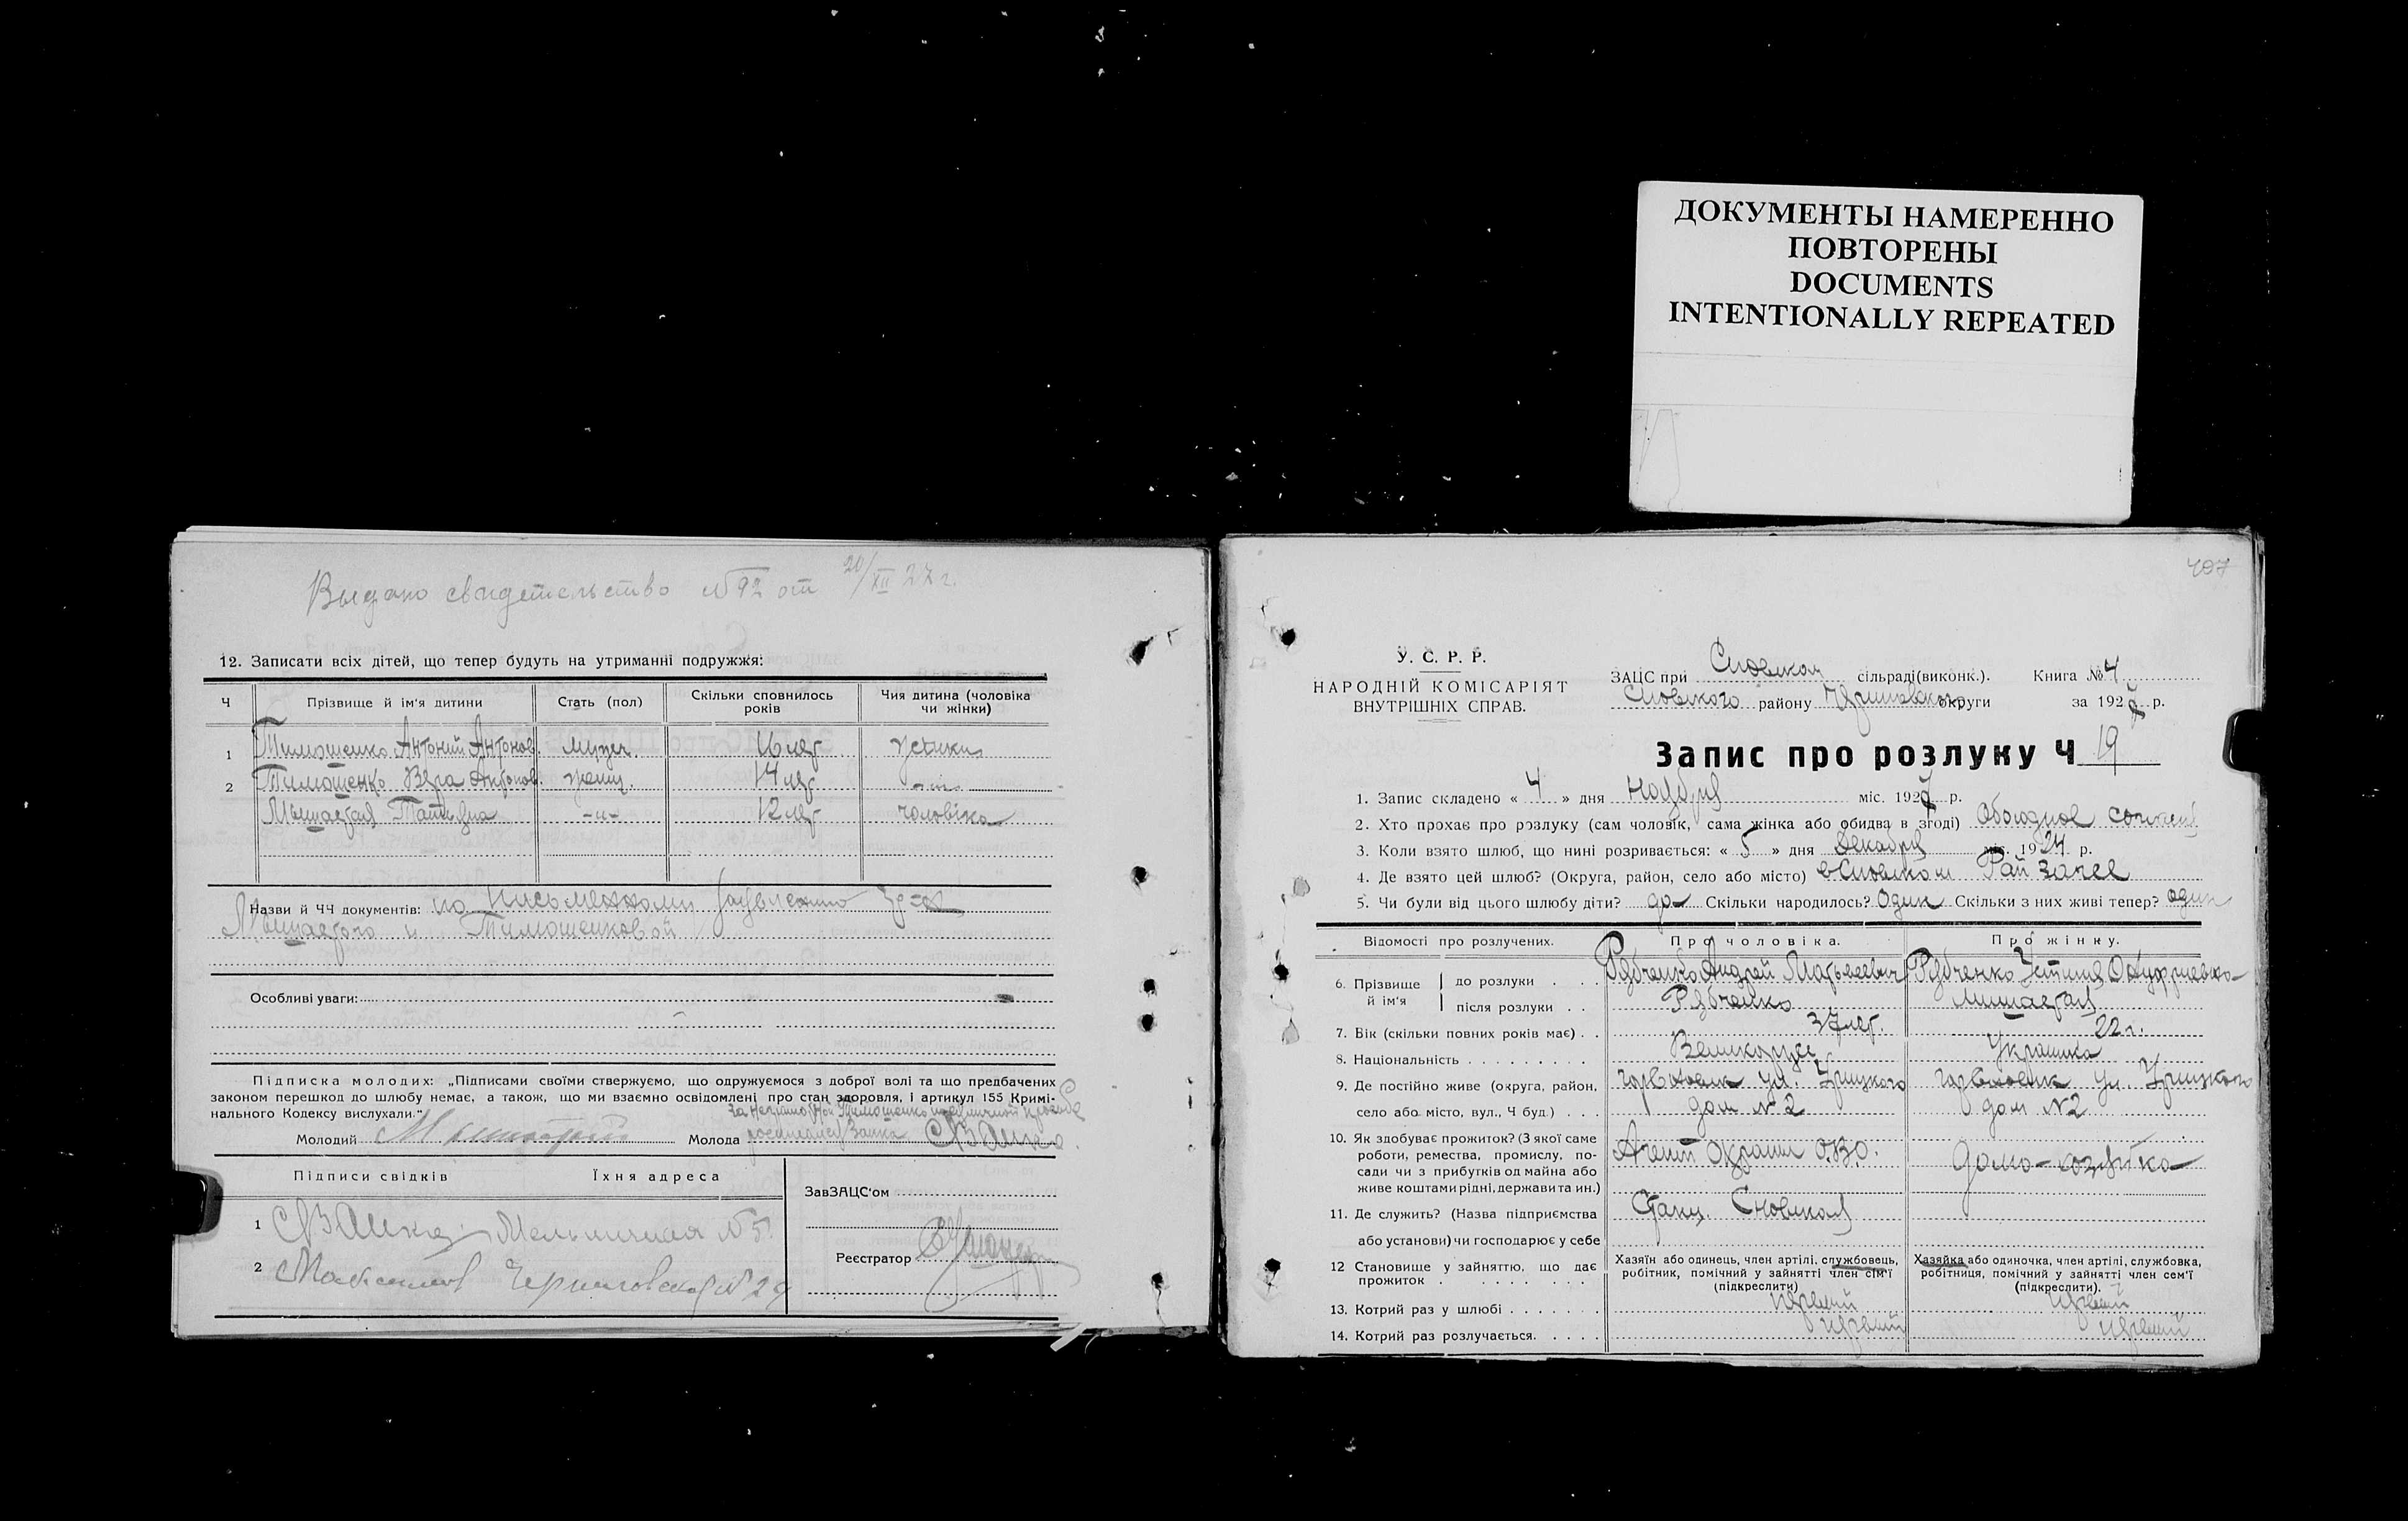 ДОКУМЕНТЫ НАМЕРЕННО
ПОВТОРЕНЫ
DOCUMENTS
INTENTIONALLY REPEATED
Выдано свидетельство №92 от 20/XII 27 г.
12. Записати всіх дітей, що тепер будуть на утриманні подружжя:
Ч Прізвище й ім'я дитини Стать (пол) Скільки сповнилось років Чия дитина (чоловіка чи жінки)
1 Тимошенко Антоний Антонов. 16 лет
2 Тимошенко Вера Антонов. 14 лет
Татьяна -"- 12 лет чоловіка
Назви й ЧЧ документів: по
и Тимошенковой
Особливі уваги:
Підписка молодих: „Підписами своїми стверджуємо, що одружуємося з доброї волі та що предбачених
законом перешкод до шлюбу немає, а також, що ми взаємно освідомлені про стан здоровля, і артикул 155 Кримі-
нального Кодексу вислухали."
Молодий Молода
Підписи свідків Їхня адреса
ЗавЗАЦС'ом
1 Мельничная №5
2 Максимов Черниговская №29
Реєстратор
497
У. С. Р. Р.
НАРОДНІЙ КОМІСАРІЯТ
ВНУТРІШНІХ СПРАВ.
ЗАЦС при Сновском сільраді(виконк.). Книга № 4
Сновского району Черниговского округи за 1927 р.
Запис про розлуку Ч 19
1. Запис складено « 4 » дня Ноября міс. 1927 р.
2. Хто прохає про розлуку (сам чоловік, сама жінка або обидва в згоді) Обоюдное
3. Коли взято шлюб, що нині розривається: « 5 » дня Декабря міс. 1924 р.
4. Де взято цей шлюб? (Округа, район, село або місто) в Сновском Рай Загсе
5. Чи були від цього шлюбу діти? да Скільки народилось? Один Скільки з них живі тепер? один
Відомості про розлучених. Про чоловіка. Про жінку.
6. Прізвище й ім'я до розлуки Рябченко Андрей Матвеевич Рябченко Устиния Онуфриевна
після розлуки Рябченко
7. Вік (скільки повних років має) 37 лет. 22 г.
8. Національність Великорусс Украинка
9. Де постійно живе (округа, район, ул. Урицкого ул. Урицкого
село або місто, вул., Ч буд.) дом №2 дом №2
10. Як здобуває прожиток? (З якої саме
роботи, ремества, промислу, по-
сади чи з прибутків од майна або
живе коштами рідні, держави та ин.)
Агент охраны
домо-хозяйка
11. Де служить? (Назва підприємства
або установи) чи господарює у себе
Станц. Сновская
12 Становище у зайняттю, що дає
прожиток
Хазяїн або одинець, член артілі, службовець,
робітник, помічний у зайнятті член сім'ї
(підкреслити)
Хазяйка або одиночка, член артілі, службовка,
робітниця, помічний у зайнятті член сем'ї
(підкреслити).
13. Котрий раз у шлюбі первый первый
14. Котрий раз розлучається. первый первый